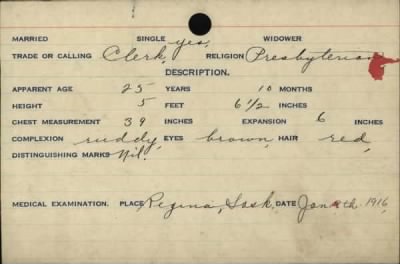 MARRIED SINGLE yes, WIDOWER
TRADE OR CALLING Clerk, RELIGION Presbyterian
DESCRIPTION.
APPARENT AGE 25 YEARS 10 MONTHS
HEIGHT 5 FEET 6 1/2 INCHES
CHEST MEASUREMENT 39 INCHES EXPANSION 6 INCHES
COMPLEXION ruddy, EYES brown, HAIR red,
DISTINGUISHING MARKS Nil.
MEDICAL EXAMINATION. PLACE Regina, Sask. DATE Jan 1916